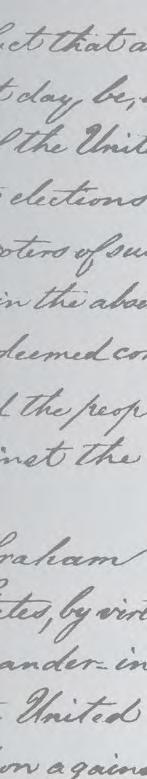 ct that a
t day, be,
f the Unit
elections
oters of su
in the abse
deemed con
d the peop
inst the
raham
tates, by virt
ander-in
United
on agains